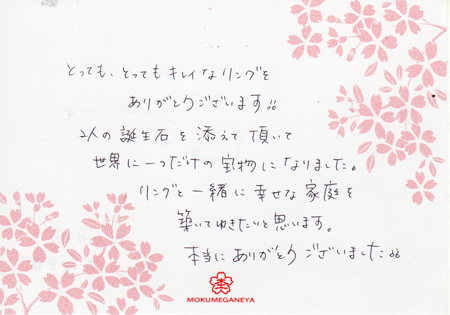 とっても、とってもキレイなリングを
ありがとうございます!!
2人の誕生石を添えて頂いて
世界に一つだけの宝物になりました。
リングと一緒に幸せな家庭を
築いてゆきたいと思います。
本当にありがとうございました!!
MOKUMEGANEYA